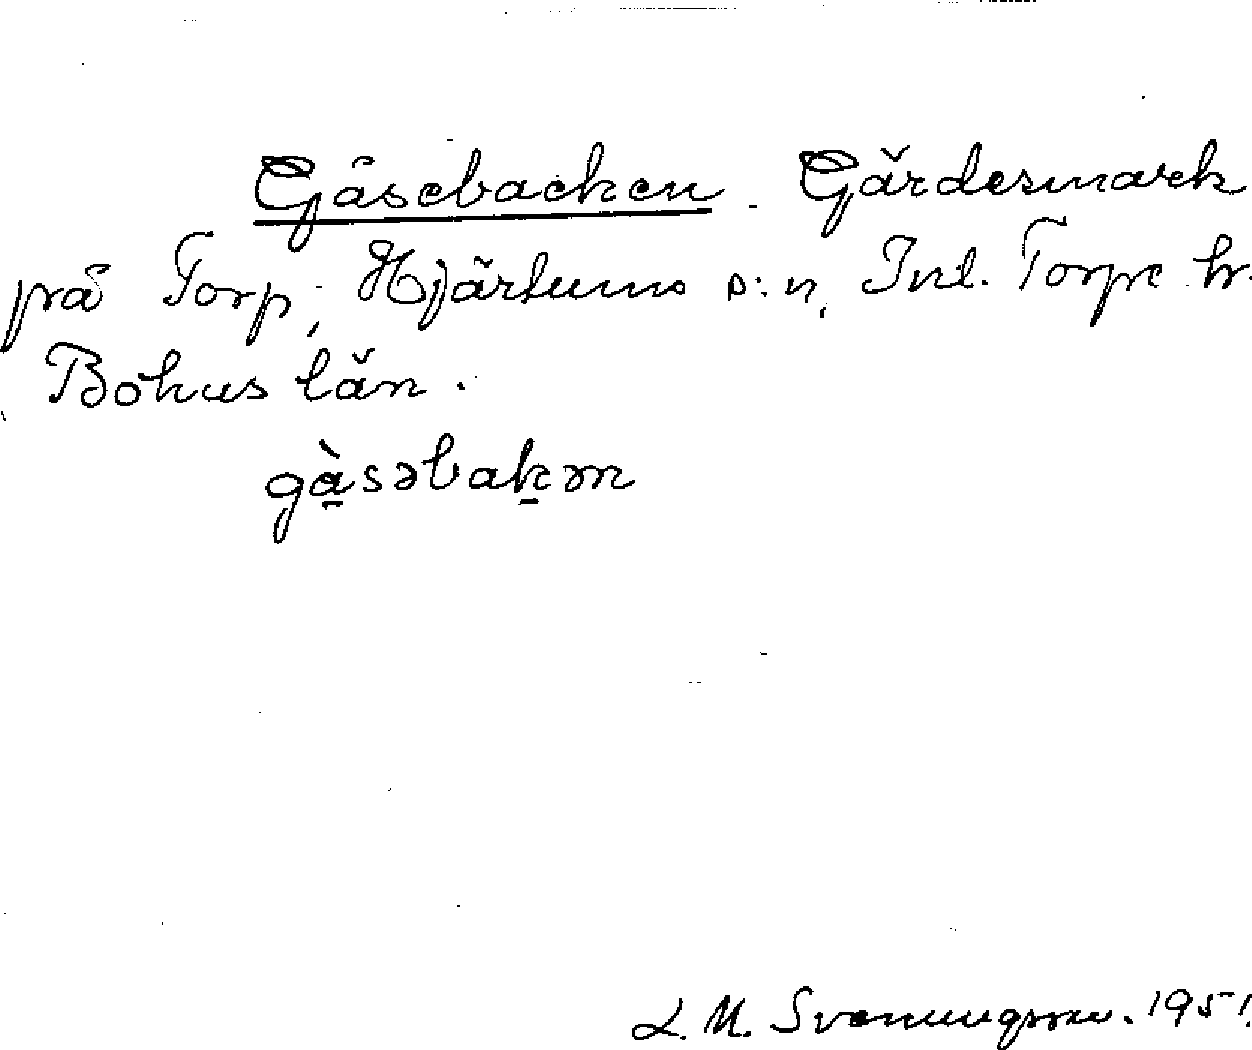 Gåsebacken. Gärdesmark
på Torp, Hjärtums s:n, Inl. Torpe hr.
Bohus län.
gàsəbakən
L. M. Svenungsson. 1951.